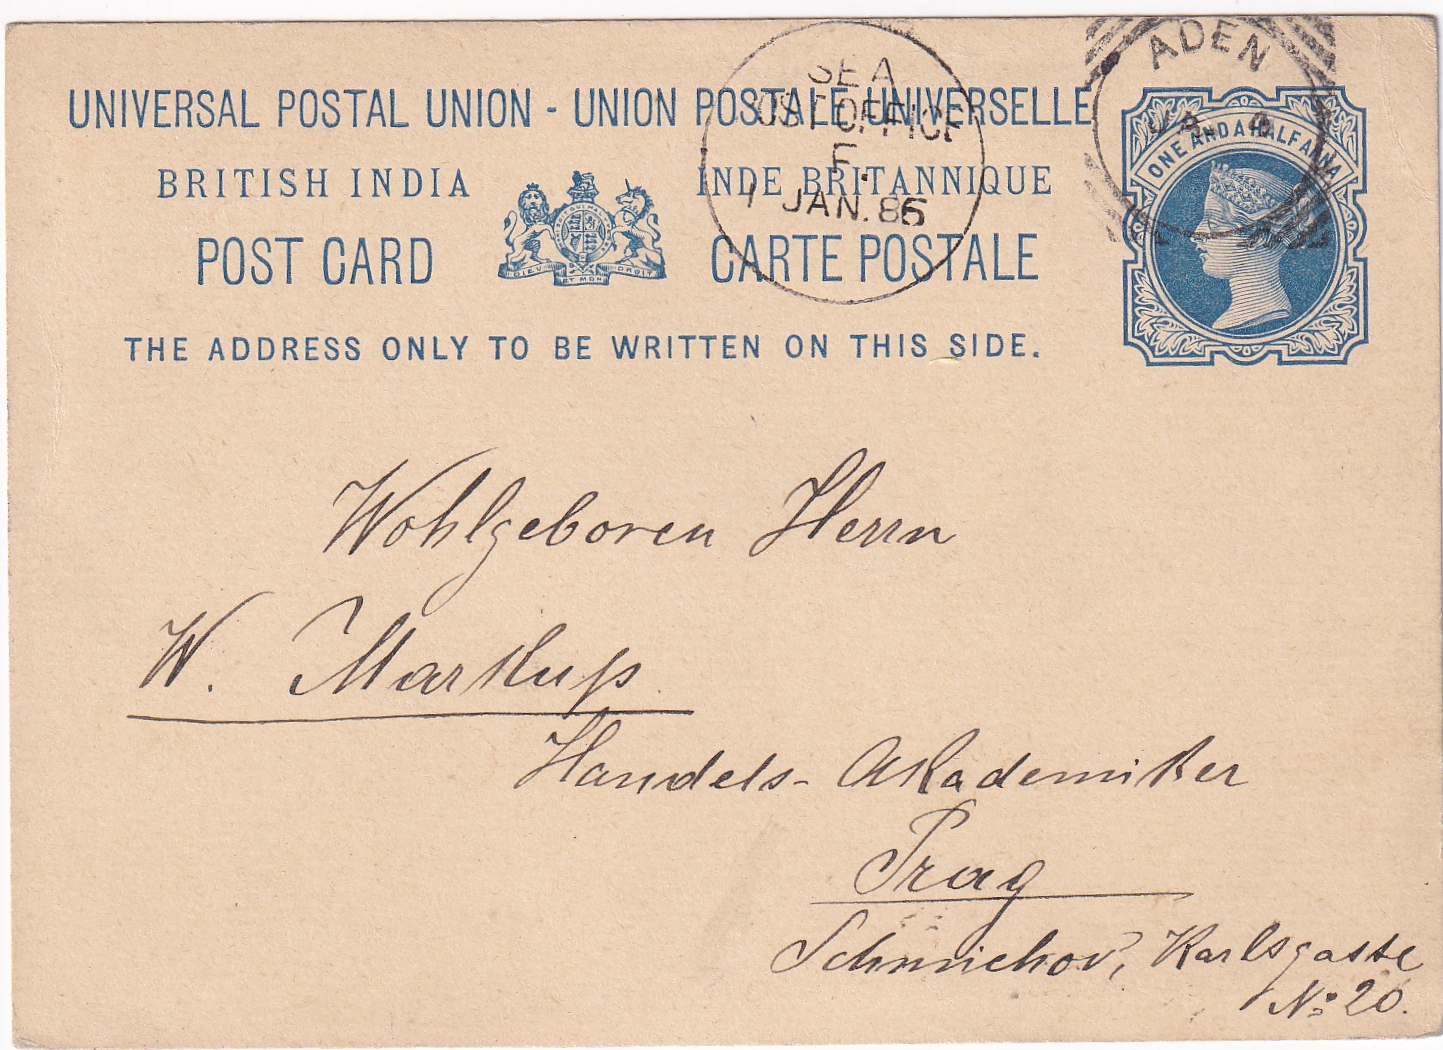 UNIVERSAL POSTAL UNION - UNION POSTALE UNIVERSELLE
BRITISH INDIA INDE BRITANNIQUE
POST CARD CARTE POSTALE
DIEU ET MON DROIT
THE ADDRESS ONLY TO BE WRITTEN ON THIS SIDE.
SEA
OST OFFICE
F.
1 JAN. 86
ADEN
ONE AND A HALF ANNA
Wohlgeboren Herrn
W. Markup
Handels-Akademiker
Prag
Schmichov, Karlsgasse
No 20.